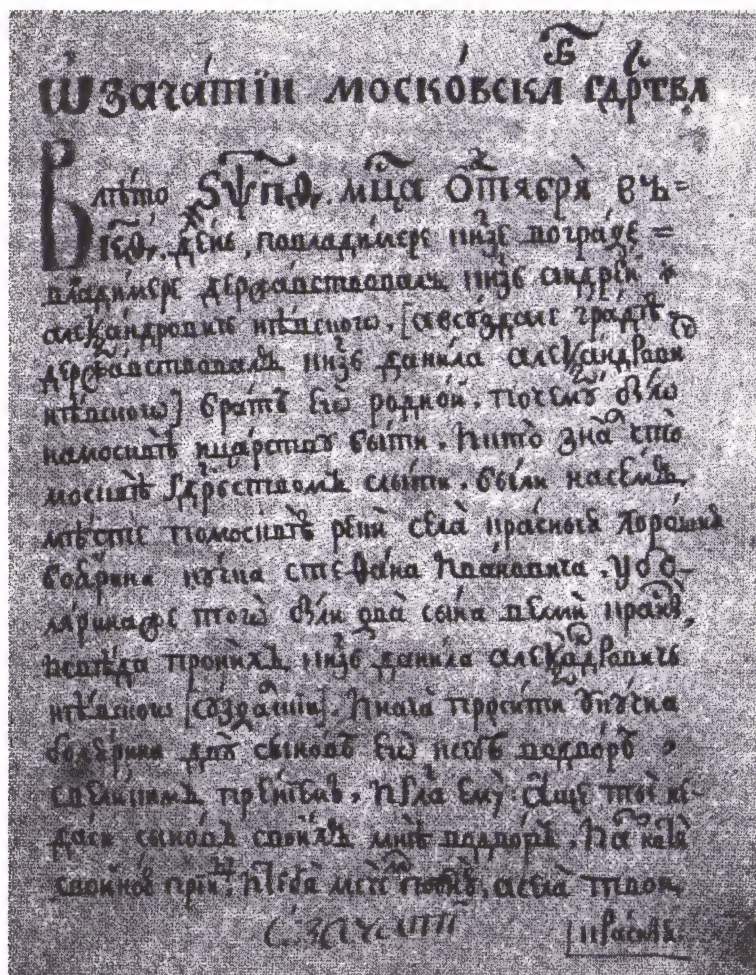 Ѡ зачатїи моско́вскагѡ гдр҃ства
В лѣто ҂ѕѱп҃ѳ. мц҃а октября въ
к҃ѳ. день, повладимере кнзе вограде
владимере державствовалъ кнзь андреи
александровичь невскаго, [авсуздале граде
державствовалъ кнзь данила александрови
невскаго] братъ егѡ роднои, почему было
намосквѣ царству быти, икто зна что
москвѣ гдрьствомъ слыти, были насемъ
мѣсте помосквѣ рекѣ села красныя хороша
боярина кучка стефана ївановича, убо
ярина же того были два сына велми красн
їсвѣда пронихъ кнзь данила александровичь
невскаго [суздалскїи]. їнача просити укучка
боярина двѹ сыновъ егѡ ксебѣ водворъ
свеликимъ прѣнїемъ, їрече ему. аще ты не
даси сыновъ своихъ мнѣ водворъ. їа натя
воиною прїиду, їтебя мечем погублю, асела твои
С. зачати
красныя